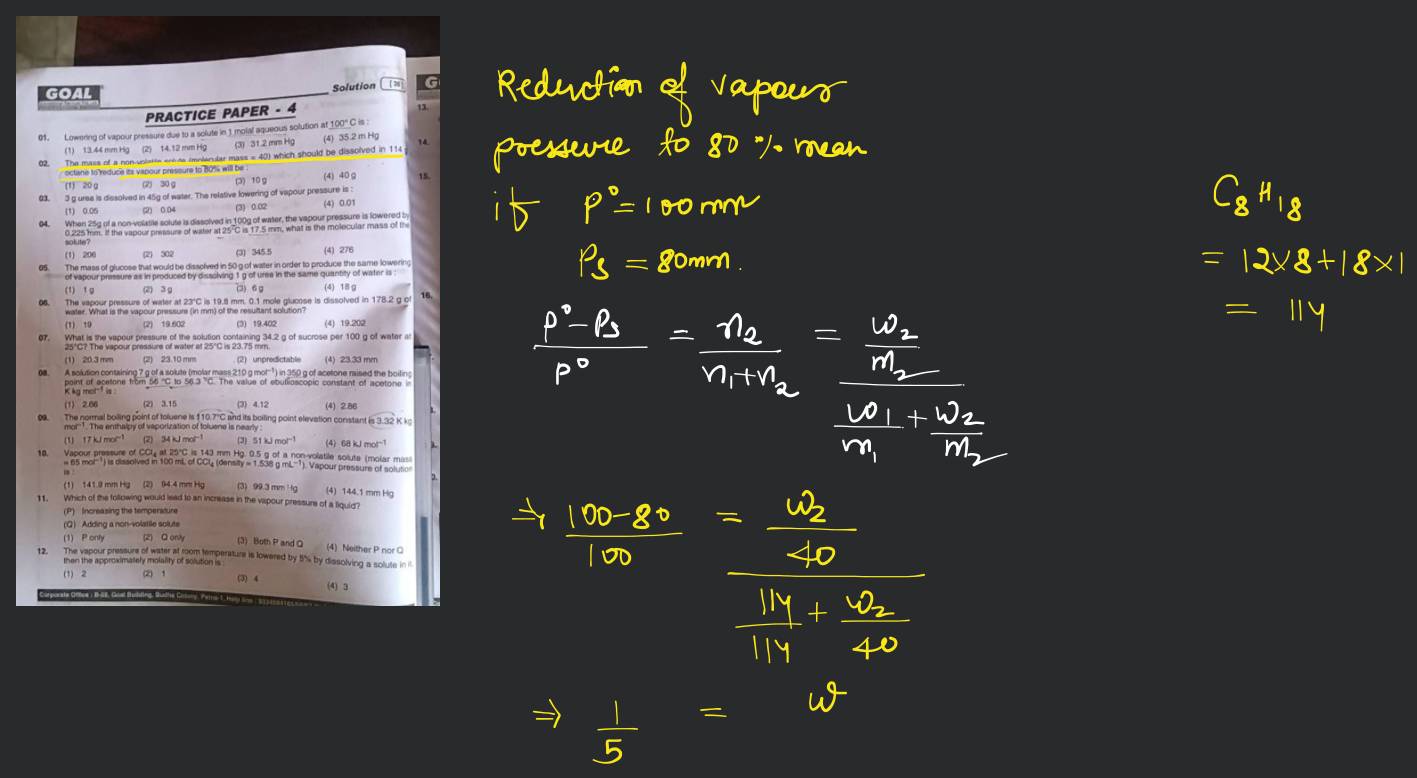 GOAL
Solution
PRACTICE PAPER - 4
01. Lowering of vapour pressure due to a solute in 1 molal aqueous solution at 100° C is :
(1) 13.44 mm Hg (2) 14.12 mm Hg (3) 31.2 mm Hg (4) 35.2 m Hg
02. The mass of a non-volatile solute (molecular mass = 40) which should be dissolved in 114
octane to reduce its vapour pressure to 80% will be :
(1) 20 g (2) 30 g (3) 10 g (4) 40 g
03. 3 g urea is dissolved in 45g of water. The relative lowering of vapour pressure is :
(1) 0.05 (2) 0.04 (3) 0.02 (4) 0.01
04. When 25g of a non-volatile solute is dissolved in 100g of water, the vapour pressure is lowered by
0.225 mm. If the vapour pressure of water at 25°C is 17.5 mm, what is the molecular mass of the
solute?
(1) 206 (2) 302 (3) 345.5 (4) 276
05. The mass of glucose that would be dissolved in 50 g of water in order to produce the same lowering
of vapour pressure as in produced by dissolving 1 g of urea in the same quantity of water is :
(1) 1 g (2) 3 g (3) 6 g (4) 18 g
06. The vapour pressure of water at 23°C is 19.8 mm. 0.1 mole glucose is dissolved in 178.2 g of
water. What is the vapour pressure (in mm) of the resultant solution?
(1) 19 (2) 19.602 (3) 19.402 (4) 19.202
07. What is the vapour pressure of the solution containing 34.2 g of sucrose per 100 g of water at
25°C? The vapour pressure of water at 25°C is 23.75 mm.
(1) 20.3 mm (2) 23.10 mm (2) unpredictable (4) 23.33 mm
08. A solution containing 7 g of a solute (molar mass 210 g mol⁻¹) in 350 g of acetone raised the boiling
point of acetone from 56 °C to 56.3 °C. The value of ebullioscopic constant of acetone in
K kg mol⁻¹ is :
(1) 2.66 (2) 3.15 (3) 4.12 (4) 2.86
09. The normal boiling point of toluene is 110.7°C and its boiling point elevation constant is 3.32 K kg
mol⁻¹. The enthalpy of vaporization of toluene is nearly :
(1) 17 kJ mol⁻¹ (2) 34 kJ mol⁻¹ (3) 51 kJ mol⁻¹ (4) 68 kJ mol⁻¹
10. Vapour pressure of CCl₄ at 25°C is 143 mm Hg. 0.5 g of a non-volatile solute (molar mass
= 65 mol⁻¹) is dissolved in 100 mL of CCl₄ (density = 1.538 g mL⁻¹). Vapour pressure of solution
is :
(1) 141.9 mm Hg (2) 94.4 mm Hg (3) 99.3 mm Hg (4) 144.1 mm Hg
11. Which of the following would lead to an increase in the vapour pressure of a liquid?
(P) Increasing the temperature
(Q) Adding a non-volatile solute
(1) P only (2) Q only (3) Both P and Q (4) Neither P nor Q
12. The vapour pressure of water at room temperature is lowered by 5% by dissolving a solute in it
then the approximately molality of solution is :
(1) 2 (2) 1 (3) 4 (4) 3
13.
14.
15.
16.
Reduction of vapour
pressure to 80 % mean
if p° = 100 mm
Ps = 80mm.
p°-Ps / p° = n₂ / n₁+n₂ = w₂/m₂ / w₁/m₁ + w₂/m₂
⇒ 100-80 / 100 = w₂/40 / 114/114 + w₂/40
⇒ 1/5 = w
C₈H₁₈
= 12×8+18×1
= 114